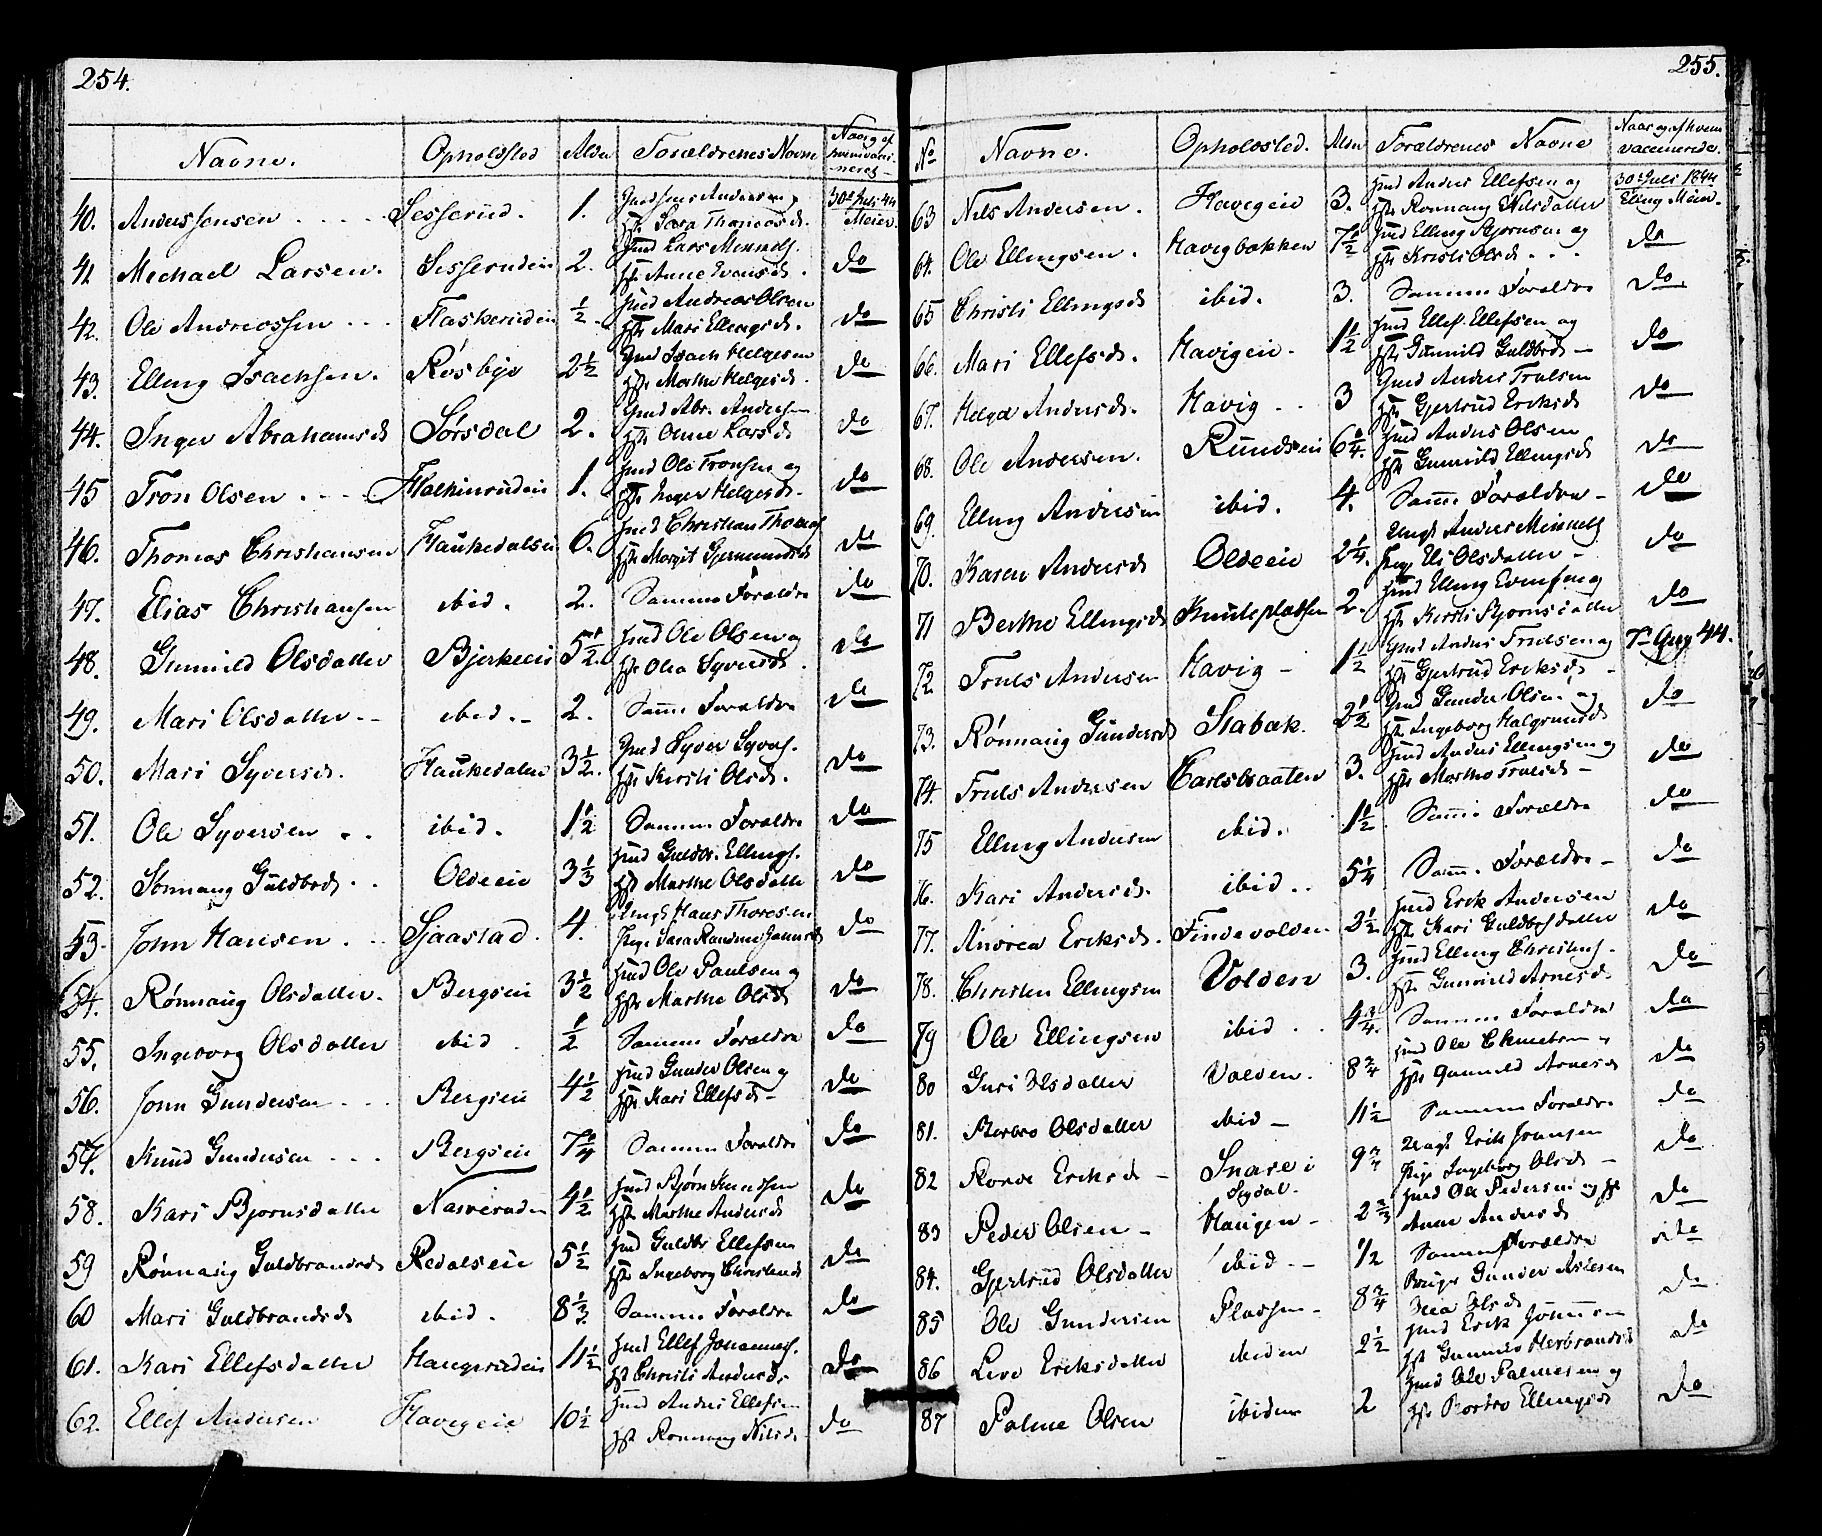 254.
Navne. Opholdsted Alder Forældrenes Navne Naar og af hvem vacci-neret
40. Anders Jensen Sesserud. 1. Gmd Jens Andersen og Hst Sara Thomasd. 30te Juli 44 Meier.
41 Mechael Larsen. Sesserudeie 2. Hmd Lars Hst Anne do
42. Ole Andreassen Flaskerudeie ½. Hmd Andreas Olsen Hst Mari Ellingsd. do
43. Elling Isachsen. Rosbye 2½ Gmd Isach Helgesen Hst Marthe Helgesd. do
44. Inger Abrahamsd Sørsdal 2. Gmd Abr. Andersen Hst Anne Larsd do
45 Tron Olsen 1. Hmd Ole Tronsen og Hst Inger Helgesd. do
46. Thomas Christiansen Haukedalseie 6. Hmd Christian Thomass Hst Margit Gjermundsd do
47. Elias Christiansen ibid. 2. Samme Forældre do
48. Gunnild Olsdatter Bjerkeeie 5½. Hmd Ole Olsen og Hst Olea Syversd. do
49. Mari Olsdatter ibid. 2. Samme Forældre do
50. Mari Syversd. Haukedalen 3½. Gmd Syver Syvers. Hst Kirsti Olsd. do
51. Ole Syversen ibid. 1½ Samme Forældre do
52. Rønnaug Guldbrd. Oldeeie 3⅓ Hmd Guldbr. Ellings. Hst Marthe Olsdatter do
53. John Hansen. Sjaastad. 4. Ungk Hans Thoresen Pige Sara Jansd do
54. Rønnaug Olsdatter. Bergseie 3½ Hmd Ole Paulsen og Hst Marthe Olsd do
55. Ingeborg Olsdatter ibid. ½ Samme Forældre do
56. John Gundersen Bergseie 4½ Hmd Gunder Olsen og Hst Kari Ellefsd do
57. Knud Gundersen Bergseie 7¾ Samme Forældre do
58. Kari Bjørnsdatter Næsverudeie 4½ Hmd Bjørn Knudsen Hst Marthe Andersd do
59 Rønnaug Guldbrandsd Redalseie 5½ Hmd Guldbr Ellefsen Hst Ingeborg Christensd do
60 Mari Guldbrandsd ibid. 8⅓ Samme Forældre do
61. Kari Ellefsdatter Haugerudeie 11½ Hmd Ellef Johannes. Hst Christi Andersd. do
62. Ellef Andersen Havigeie 10½ Hmd Anders Ellefsen Hst Rønnaug Nilsd. do
255.
No Navne. Opholdsted. Alder Forældrenes Navne Naar og af hvem vaccinerede.
63 Nils Andersen. Havigeie 3. Hmd Anders Ellefsen og Hst Rønnaug Nilsdatter 30te Juli 1844 Elling Meier.
64. Ole Ellingsen. Havigbakken 7½ Hmd Elling Bjørnsen og Hst Kirsti Olsd do
65 Christi Ellingsd ibid. 3. Samme Forældre do
66. Mari Ellefsd. Havigeie. 1½ Hmd Ellef Ellefsen og Hst Gunnild Guldbrd do
67. Helga Andersd. Havig 3 Gmd Anders Trulsen Hst Gjertrud Eriksd do
68. Ole Andersen. Rundseie 6¾. Hmd Anders Olsen Hst Gunnild Ellingsd do
69. Elling Andersen ibid. 4. Samme Forældre do
70. Karen Andersd Oldeeie 2¼. Ungk Anders Pige Eli Olsdatter do
71 Berthe Ellingsd Knuteplassen 2. Hmd Elling Evensen og Hst Kirsti Bjørnsdatter do
72. Truls Andersen Havig 1½ Gmd Anders Trulsen og Hst Gjertrud Eriksd 7de Aug 44.
73. Rønnaug Gundersd Stabæk. 2½ Gmd Gunder Olsen og Hst Ingeborg Halgrimsd do
74. Truls Andersen Carlsbraaten 3. Hmd Anders Ellingsen og Hst Marthe Trulsd do
75 Elling Andersen ibid. 1½ Samme Forældre do
76. Kari Andersd. ibid. 5¼ Samme Forældre do
77. Andrea Eriksd. Findevolden 2½ Hmd Erik Andersen Hst Kari Guldbrdatter do
78. Christen Ellingsen Volden 3. Hmd Elling Christens. Hst Gunnild Arnesd. do
79 Ole Ellingsen ibid. 4¾. Samme Forældre do
80 Guri Olsdatter Volden. 8¾ Hmd Ole Christens og Hst Gunnild Arnesd do
81. Barbro Olsdatter ibid 11½ Samme Forældre do
82 Eriksd Snare i Sigdal. 9¾ Ungk Erik Jonsen Pige Ingeborg Olsd do
83 Peder Olsen Haugen 2⅔ Hmd Ole Pedersen og Hst Anne Andersd do
84. Gjertrud Olsdatter ibid. ½ Samme Forældre do
85 Ole Gundersen Plassen 8¾ Gunder Olsd do
86 Live Eriksdatter ibidem 2½ Hmd Erik Hst Gunnild Herbrandsd do
87 Palme Olsen ibidem 2 Hmd Ole Palmesen og Hst Barbro Ellingsd do